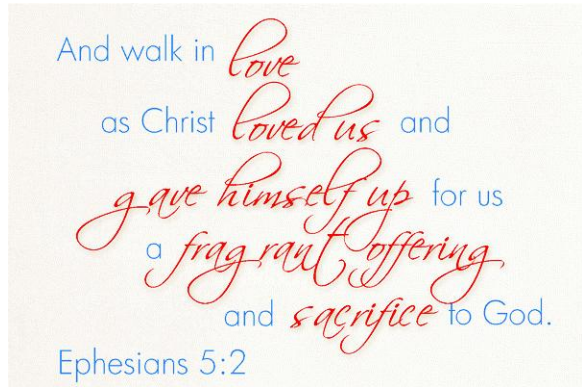 And walk in love
as Christ loved us and
gave himself up for us
a fragrant offering
and sacrifice to God.
Ephesians 5:2